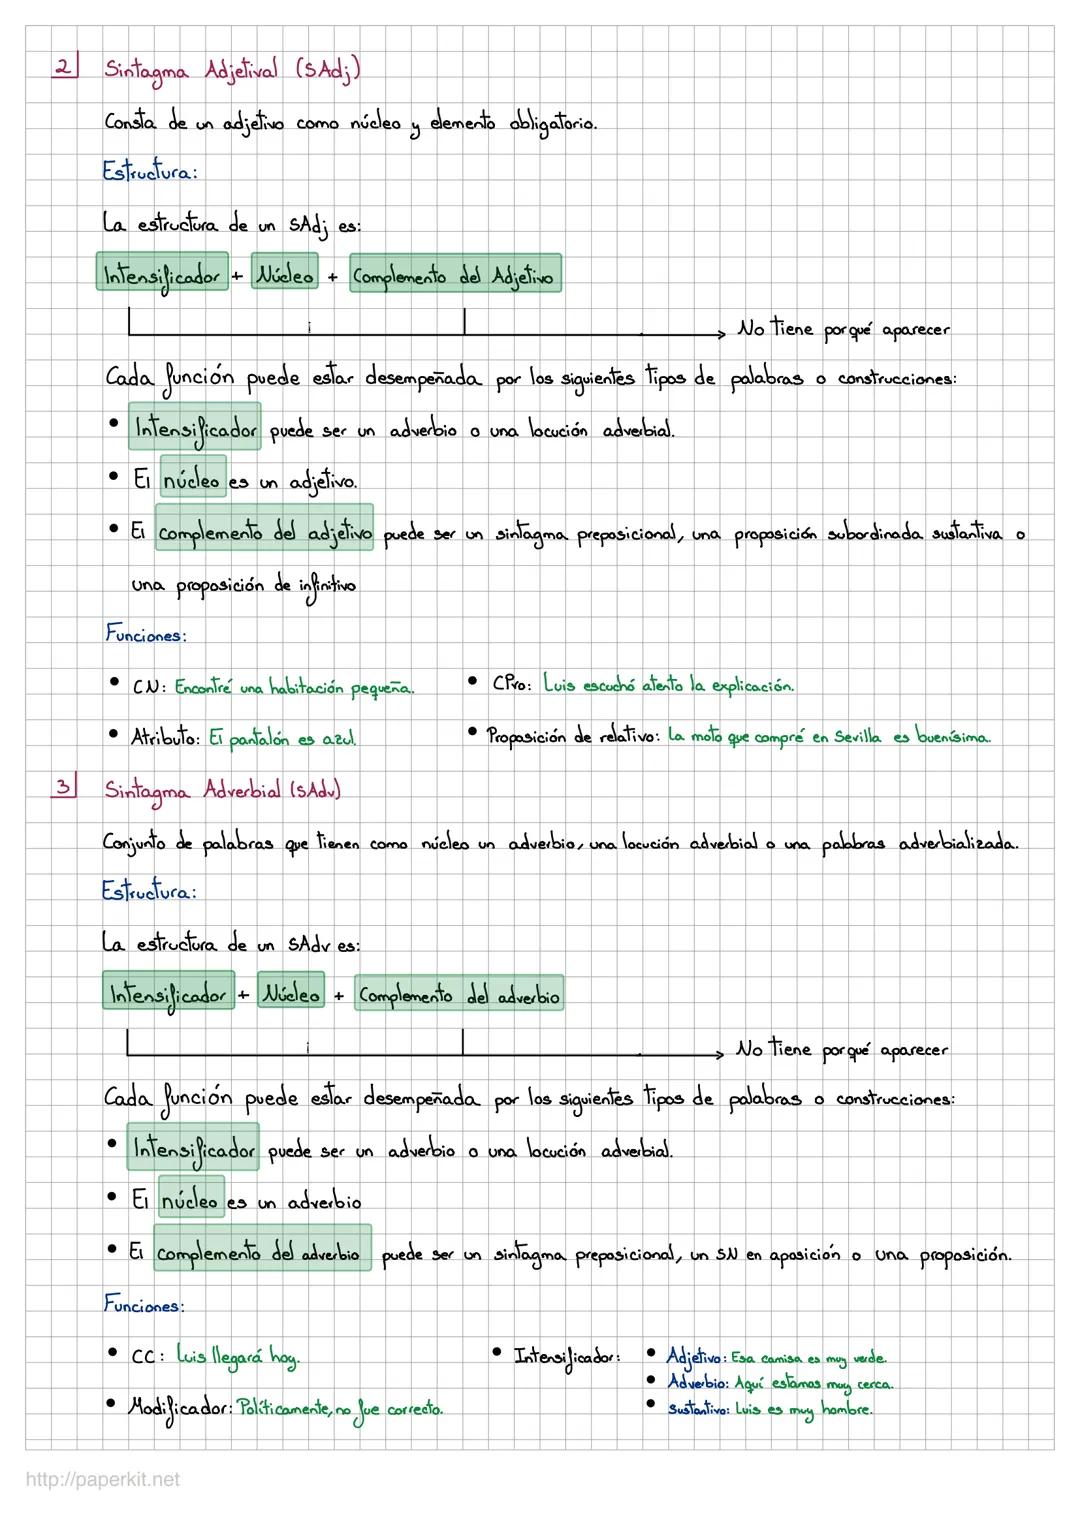 2 Sintagma Adjetival (SAdj)
Consta de un adjetivo como núcleo y elemento obligatorio.
Estructura:
La estructura de un SAdj es:
Intensificador + Núcleo + Complemento del Adjetivo
No tiene por qué aparecer
Cada función puede estar desempeñada por los siguientes tipos de palabras o construcciones:
• Intensificador puede ser un adverbio o una locución adverbial.
• El núcleo es un adjetivo.
• El complemento del adjetivo puede ser un sintagma preposicional, una proposición subordinada sustantiva o
una proposición de infinitivo
Funciones:
• CN: Encontré una habitación pequeña. • CPro: Luis escuchó atento la explicación.
• Atributo: El pantalón es azul. • Proposición de relativo: La moto que compré en Sevilla es buenísima.
3 Sintagma Adverbial (SAdv)
Conjunto de palabras que tienen como núcleo un adverbio, una locución adverbial o una palabras adverbializada.
Estructura:
La estructura de un SAdv es:
Intensificador + Núcleo + Complemento del adverbio
No tiene por qué aparecer
Cada función puede estar desempeñada por los siguientes tipos de palabras o construcciones:
• Intensificador puede ser un adverbio o una locución adverbial.
• El núcleo es un adverbio
• El complemento del adverbio puede ser un sintagma preposicional, un SN en aposición o una proposición.
Funciones:
• CC: Luis llegará hoy. • Intensificador: • Adjetivo: Esa camisa es muy verde.
• Adverbio: Aquí estamos muy cerca.
• Modificador: Políticamente, no fue correcto. • Sustantivo: Luis es muy hombre.
http://paperkit.net